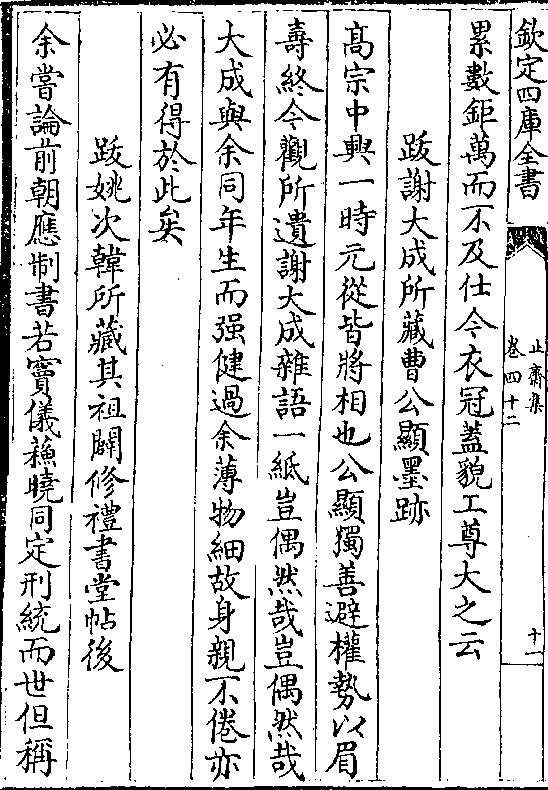 欽定四庫全書
止齋集
卷四十二
十一
累數鉅萬而不及仕今衣冠蓋貌工尊大之云
跋謝大成所藏曹公顯墨跡
髙宗中興一時元從皆將相也公顯獨善避權勢以眉
壽終今觀所遺謝大成雜語一紙豈偶然哉豈偶然哉
大成與余同年生而强健過余薄物細故身親不倦亦
必有得於此矣
跋姚次韓所藏其祖闢修禮書堂帖後
余嘗論前朝應制書若竇儀蘓曉同定刑統而世但稱